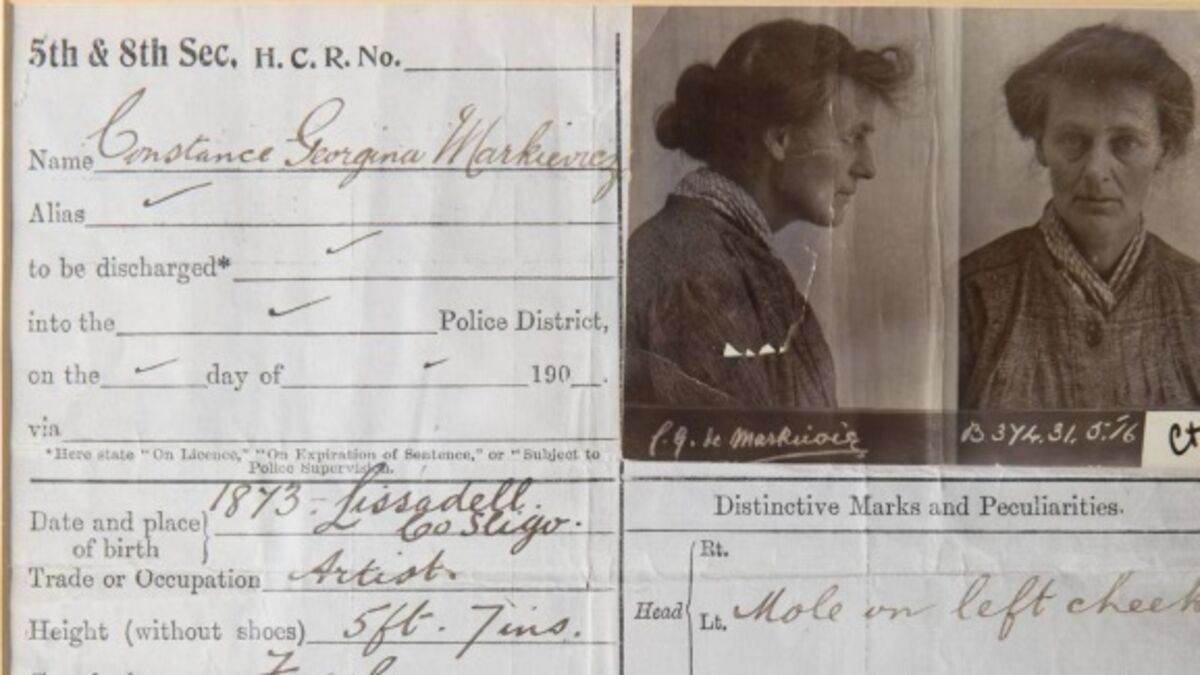 5th & 8th Sec, H. C. R. No.
Name Constance Georgina Markievicz
Alias
to be discharged*
into the Police District,
on the day of 190 .
via
*Here state "On Licence," "On Expiration of Sentence," or "Subject to
Police Supervision.
Date and place of birth 1873 - Lissadell.
Co Sligo.
Trade or Occupation Artist.
Height (without shoes) 5ft. 7ins.
C. G. de Markievicz
B 374.31.5.16
Distinctive Marks and Peculiarities.
Head
Rt.
Lt. Mole on left cheek